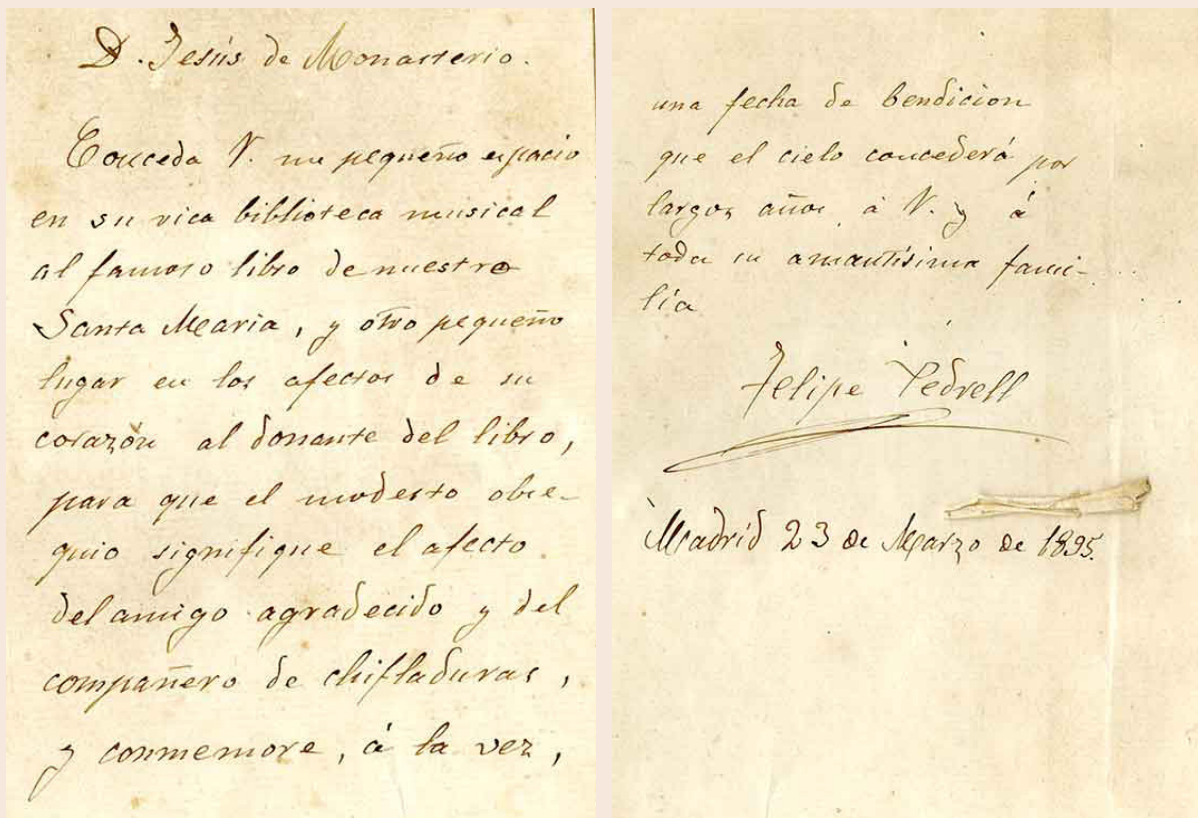 D. Jesús de Monasterio.
Conceda V. un pequeño espacio
en su rica biblioteca musical
al famoso libro de nuestra
Santa Maria, y otro pequeño
lugar en los afectos de su
corazón al donante del libro,
para que el modesto obse-
quio signifique el afecto
del amigo agradecido y del
compañero de chifladuras,
y conmemore, á la vez,
una fecha de bendicion
que el cielo concederá por
largos años á V. y á
toda su amantísima fami-
lia
Felipe Pedrell
Madrid 23 de Marzo de 1895.